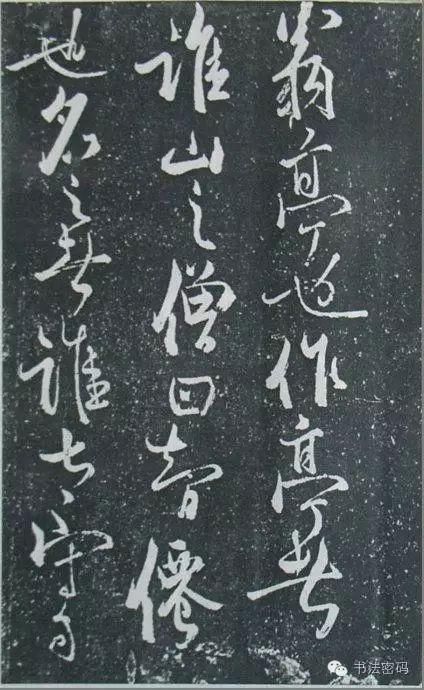 翁亭也作亭者
誰山之僧曰智僊
也名之者誰太守自
书法密码